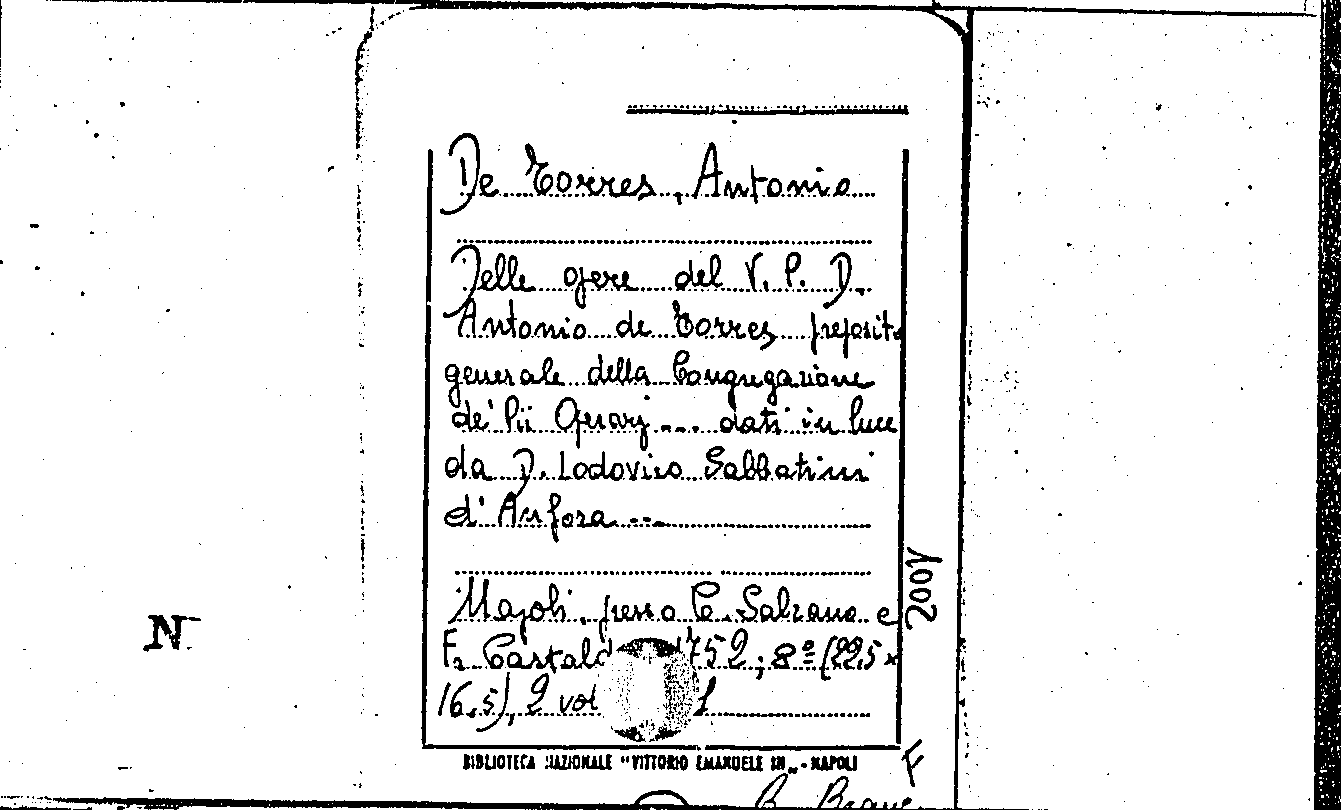 De Torres, Antonio
Delle opere del V. P. D.
Antonio de Torres, preposit
generale della Congregazione
de' Pii Operarj ... dati in luce
da D. Lodovico Sabbatini
d'Anfora ...
Napoli, presso C. Salzano e
F. Castald 1752; 8º (22,5 x
16,5), 2 vol 1
BIBLIOTECA NAZIONALE "VITTORIO EMANUELE III" - NAPOLI
N
F
B